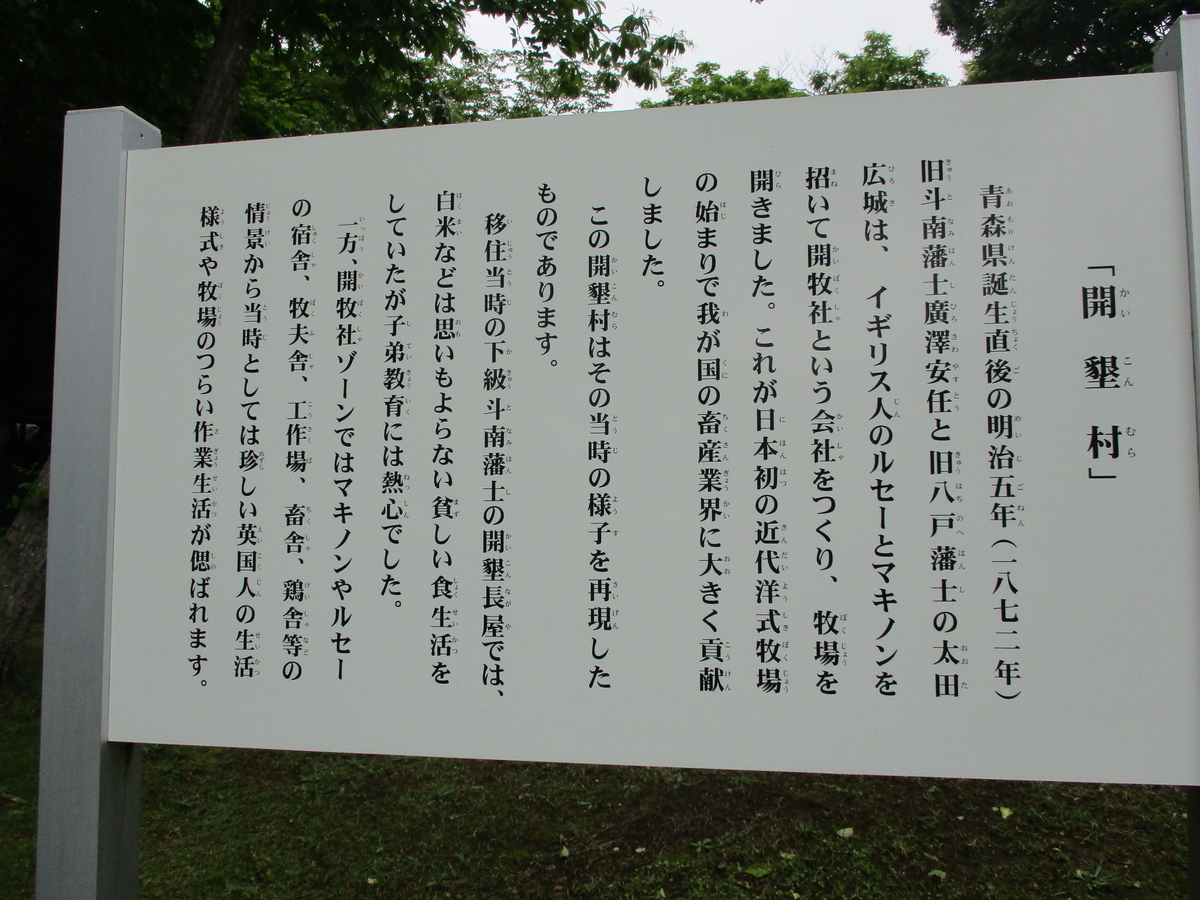 「開墾村」
青森県誕生直後の明治五年（一八七二年）
旧斗南藩士廣澤安任と旧八戸藩士の太田
広城は、イギリス人のルセーとマキノンを
招いて開牧社という会社をつくり、牧場を
開きました。これが日本初の近代洋式牧場
の始まりで我が国の畜産業界に大きく貢献
しました。
この開墾村はその当時の様子を再現した
ものであります。
移住当時の下級斗南藩士の開墾長屋では、
白米などは思いもよらない貧しい食生活を
していたが子弟教育には熱心でした。
一方、開牧社ゾーンではマキノンやルセー
の宿舎、牧夫舎、工作場、畜舎、鶏舎等の
情景から当時としては珍しい英国人の生活
様式や牧場のつらい作業生活が偲ばれます。